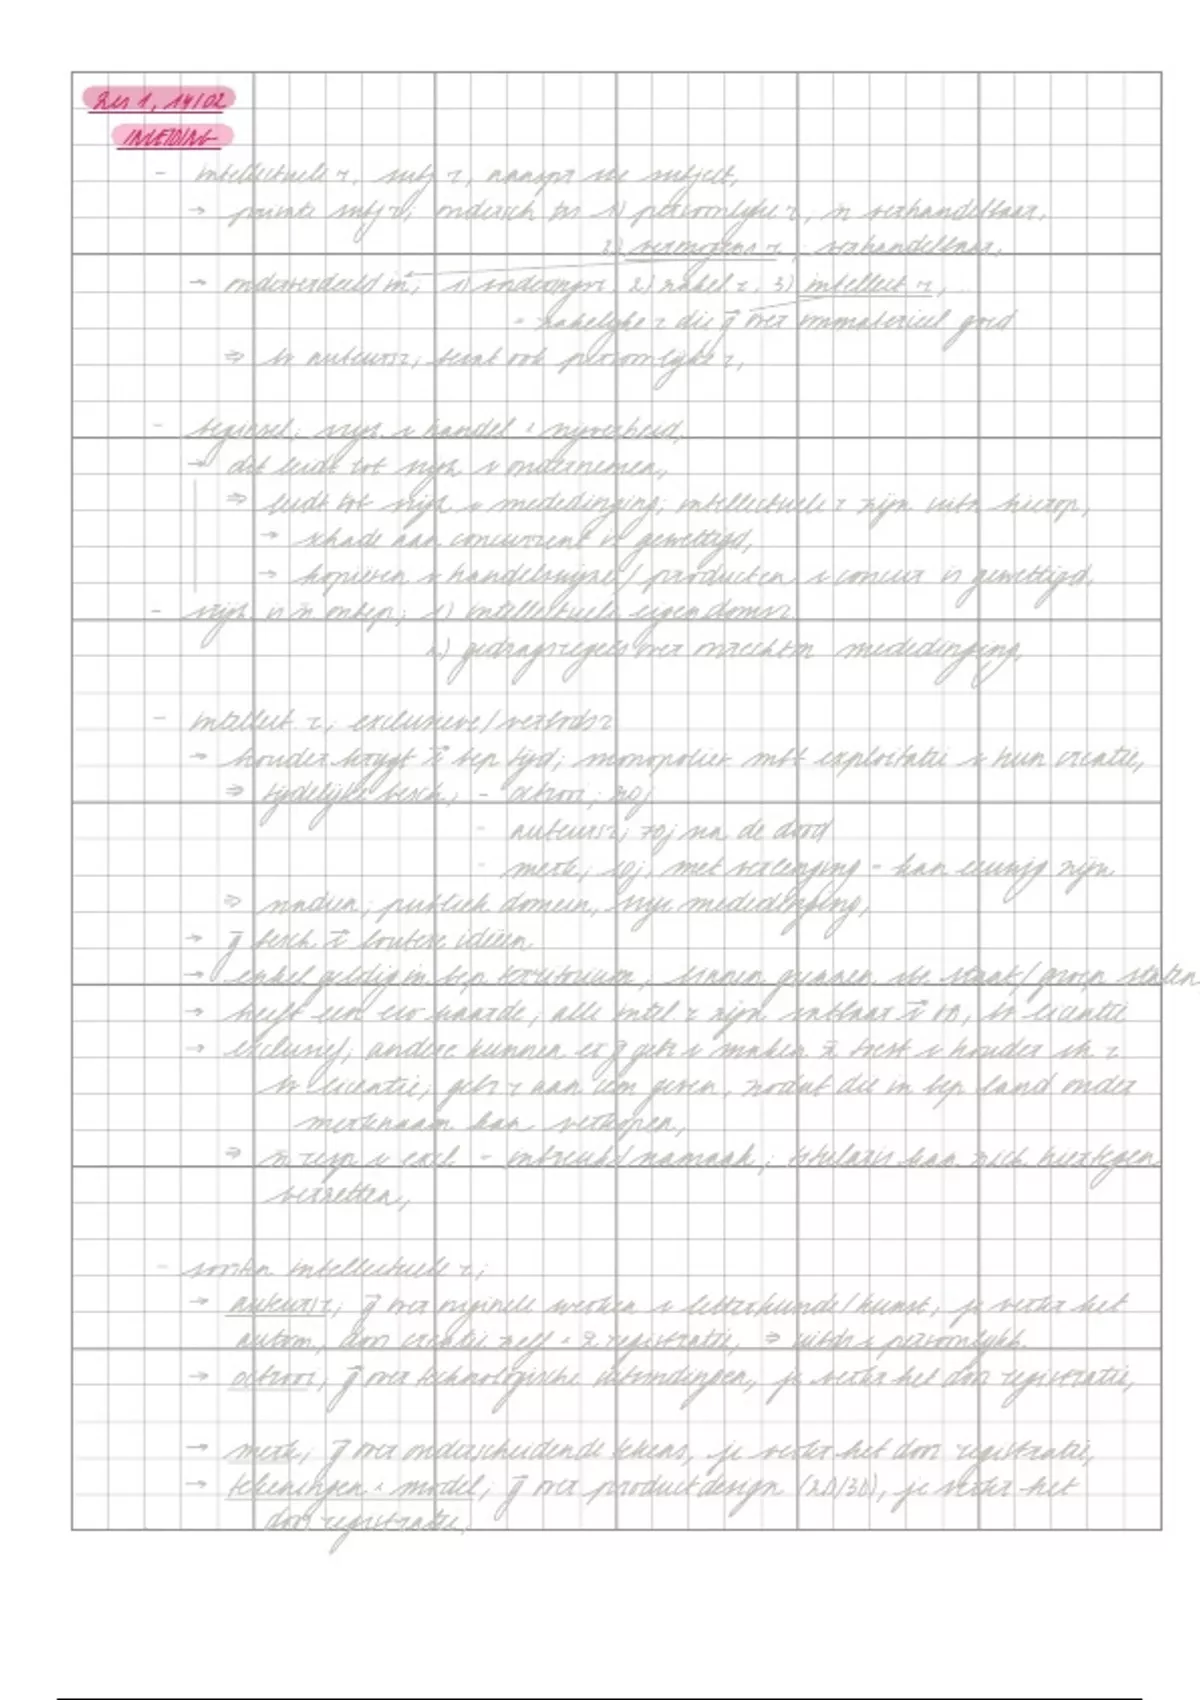 Les 1, 14/02
INLEIDING
- intellectuele r, subj r, aanspr vh subject,
→ private subj r; ondersch tss 1) persoonlijke r, n verhandelbaar,
2) vermogens r, verhandelbaar,
→ onderverdeeld in; 1) 2) zakel r, 3) intellect r,
= zakelijke r die g over immaterieel goed
⇒ bv auteursr, bevat ook persoonlijke r,
- beginsel; vrijh v handel + nijverheid,
→ dit leidt tot vrijh v ondernemen,
⇒ leidt tot vrijh v mededinging; intellectuele r zijn uitz hierop,
→ schade aan concurrent is gewettigd,
→ kopiëren v handelswijze / producten v concur is gewettigd,
- vrijh is n onbep; 1) intellectuele eigendomsr
2) gedragsregels over onrechtm mededinging,
- intellect r; exclusieve / verbodsr
→ houder krijgt bep tijd; monopolie mbt exploitatie v hun creatie,
⇒ tijdelijke besch; - octrooi; 20j
- auteursr; 70j na de dood
- merk; 10j, met verlenging = kan eeuwig zijn
⇒ nadien; publiek domein, vrije mededinging,
→ g besch loutere ideeën
→ enkel geldig in bep territorium; binnen grenzen vd staat / groep staten
→ heeft een ecv waarde; alle intel r zijn vatbaar, bv licentie
→ exclusief; andere kunnen er g gebr v maken toest v houder vh r
bv licentie; gebr r aan iem geven, zodat die in bep land onder
merknaam kan verkopen,
⇒ n resp v excl = inbreuk / namaak; titularis kan zich hiertegen
verzetten,
- soorten intellectuele r;
→ auteursr; g over originele werken v letterkunde / kunst, je verkr het
autom, door creatie zelf + registratie, ⇒ uitdr v persoonlijkh
→ octrooi; g over technologische uitvindingen, je verkr het door registratie,
→ merk; g over onderscheidende tekens, je verkr het door registratie,
→ tekeningen + model; g over productdesign (2D/3D), je verkr het
door registratie,